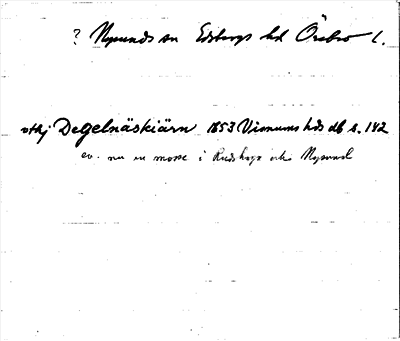 ? Nysunds sn Edsbergs hd Örebro l.
otkj Degelnäskiärn 1653 Visnums hds db s. 142
ev. nu en mosse i Rudskoga och Nysund